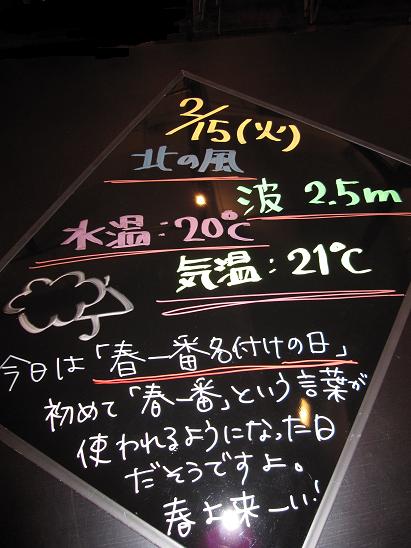 2/15(火)
北の風
波 2.5m
水温:20℃
気温:21℃
今日は「春一番名付けの日」
初めて「春一番」という言葉が
使われるようになった日
だそうですよ。
春よ来ーい!